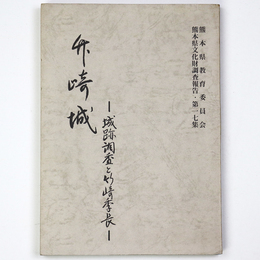 熊本県教育委員会
熊本県文化財調査報告・第一七集
竹崎城
―城跡調査と竹崎季長―